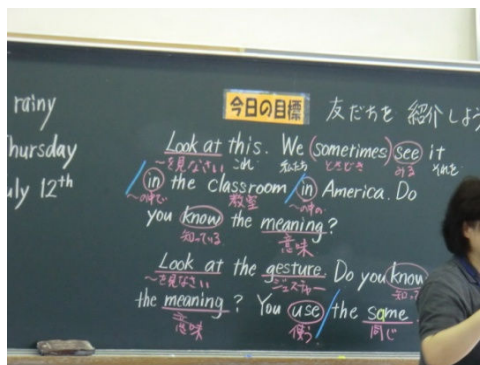 rainy
Thursday
July 12th
今日の目標 友だちを 紹介しよう
Look at this. We (sometimes) see it
〜を見なさい これ 私たち ときどき みる それを
in the classroom in America. Do
〜の中で 教室 〜の中の
you know the meaning?
知っている 意味
Look at the gesture. Do you know
〜を見なさい ジェスチャー 知って
the meaning? You use the same
意味 使う 同じ